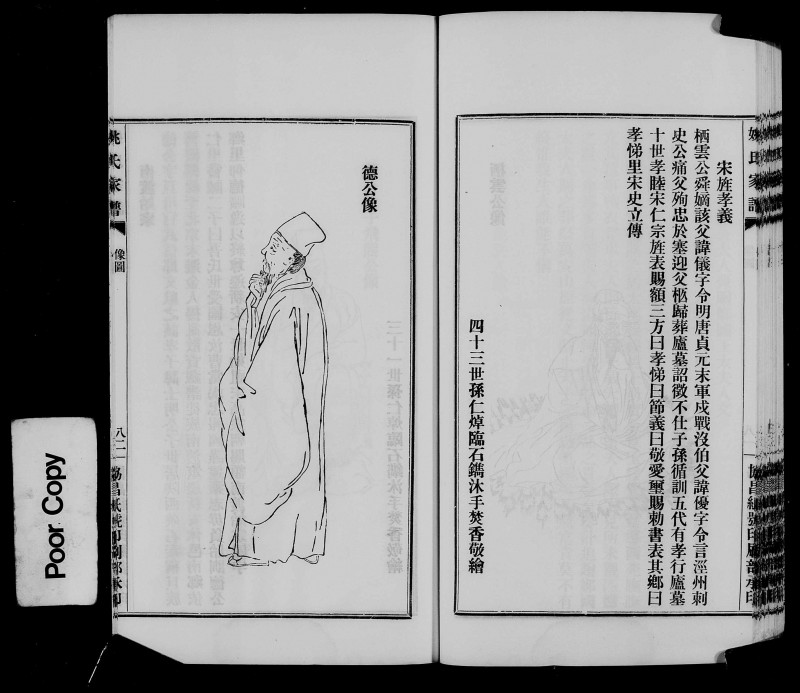 姚氏家譜
宋旌孝義
栖雲公舜嫡該父諱儀字令明唐貞元末軍戍戰沒伯父諱優字令言涇州刺
史公痛父殉忠於塞迎父柩歸葬廬墓詔徵不仕子孫循訓五代有孝行廬墓
十世孝睦宋仁宗旌表賜額三方曰孝悌曰節義曰敬愛璽賜勅書表其鄉曰
孝悌里宋史立傳
四十三世孫仁焯臨石鐫沐手焚香敬繪
德公像
姚氏家譜
像圖
八二
協昌紙號印刷部承印
Poor Copy